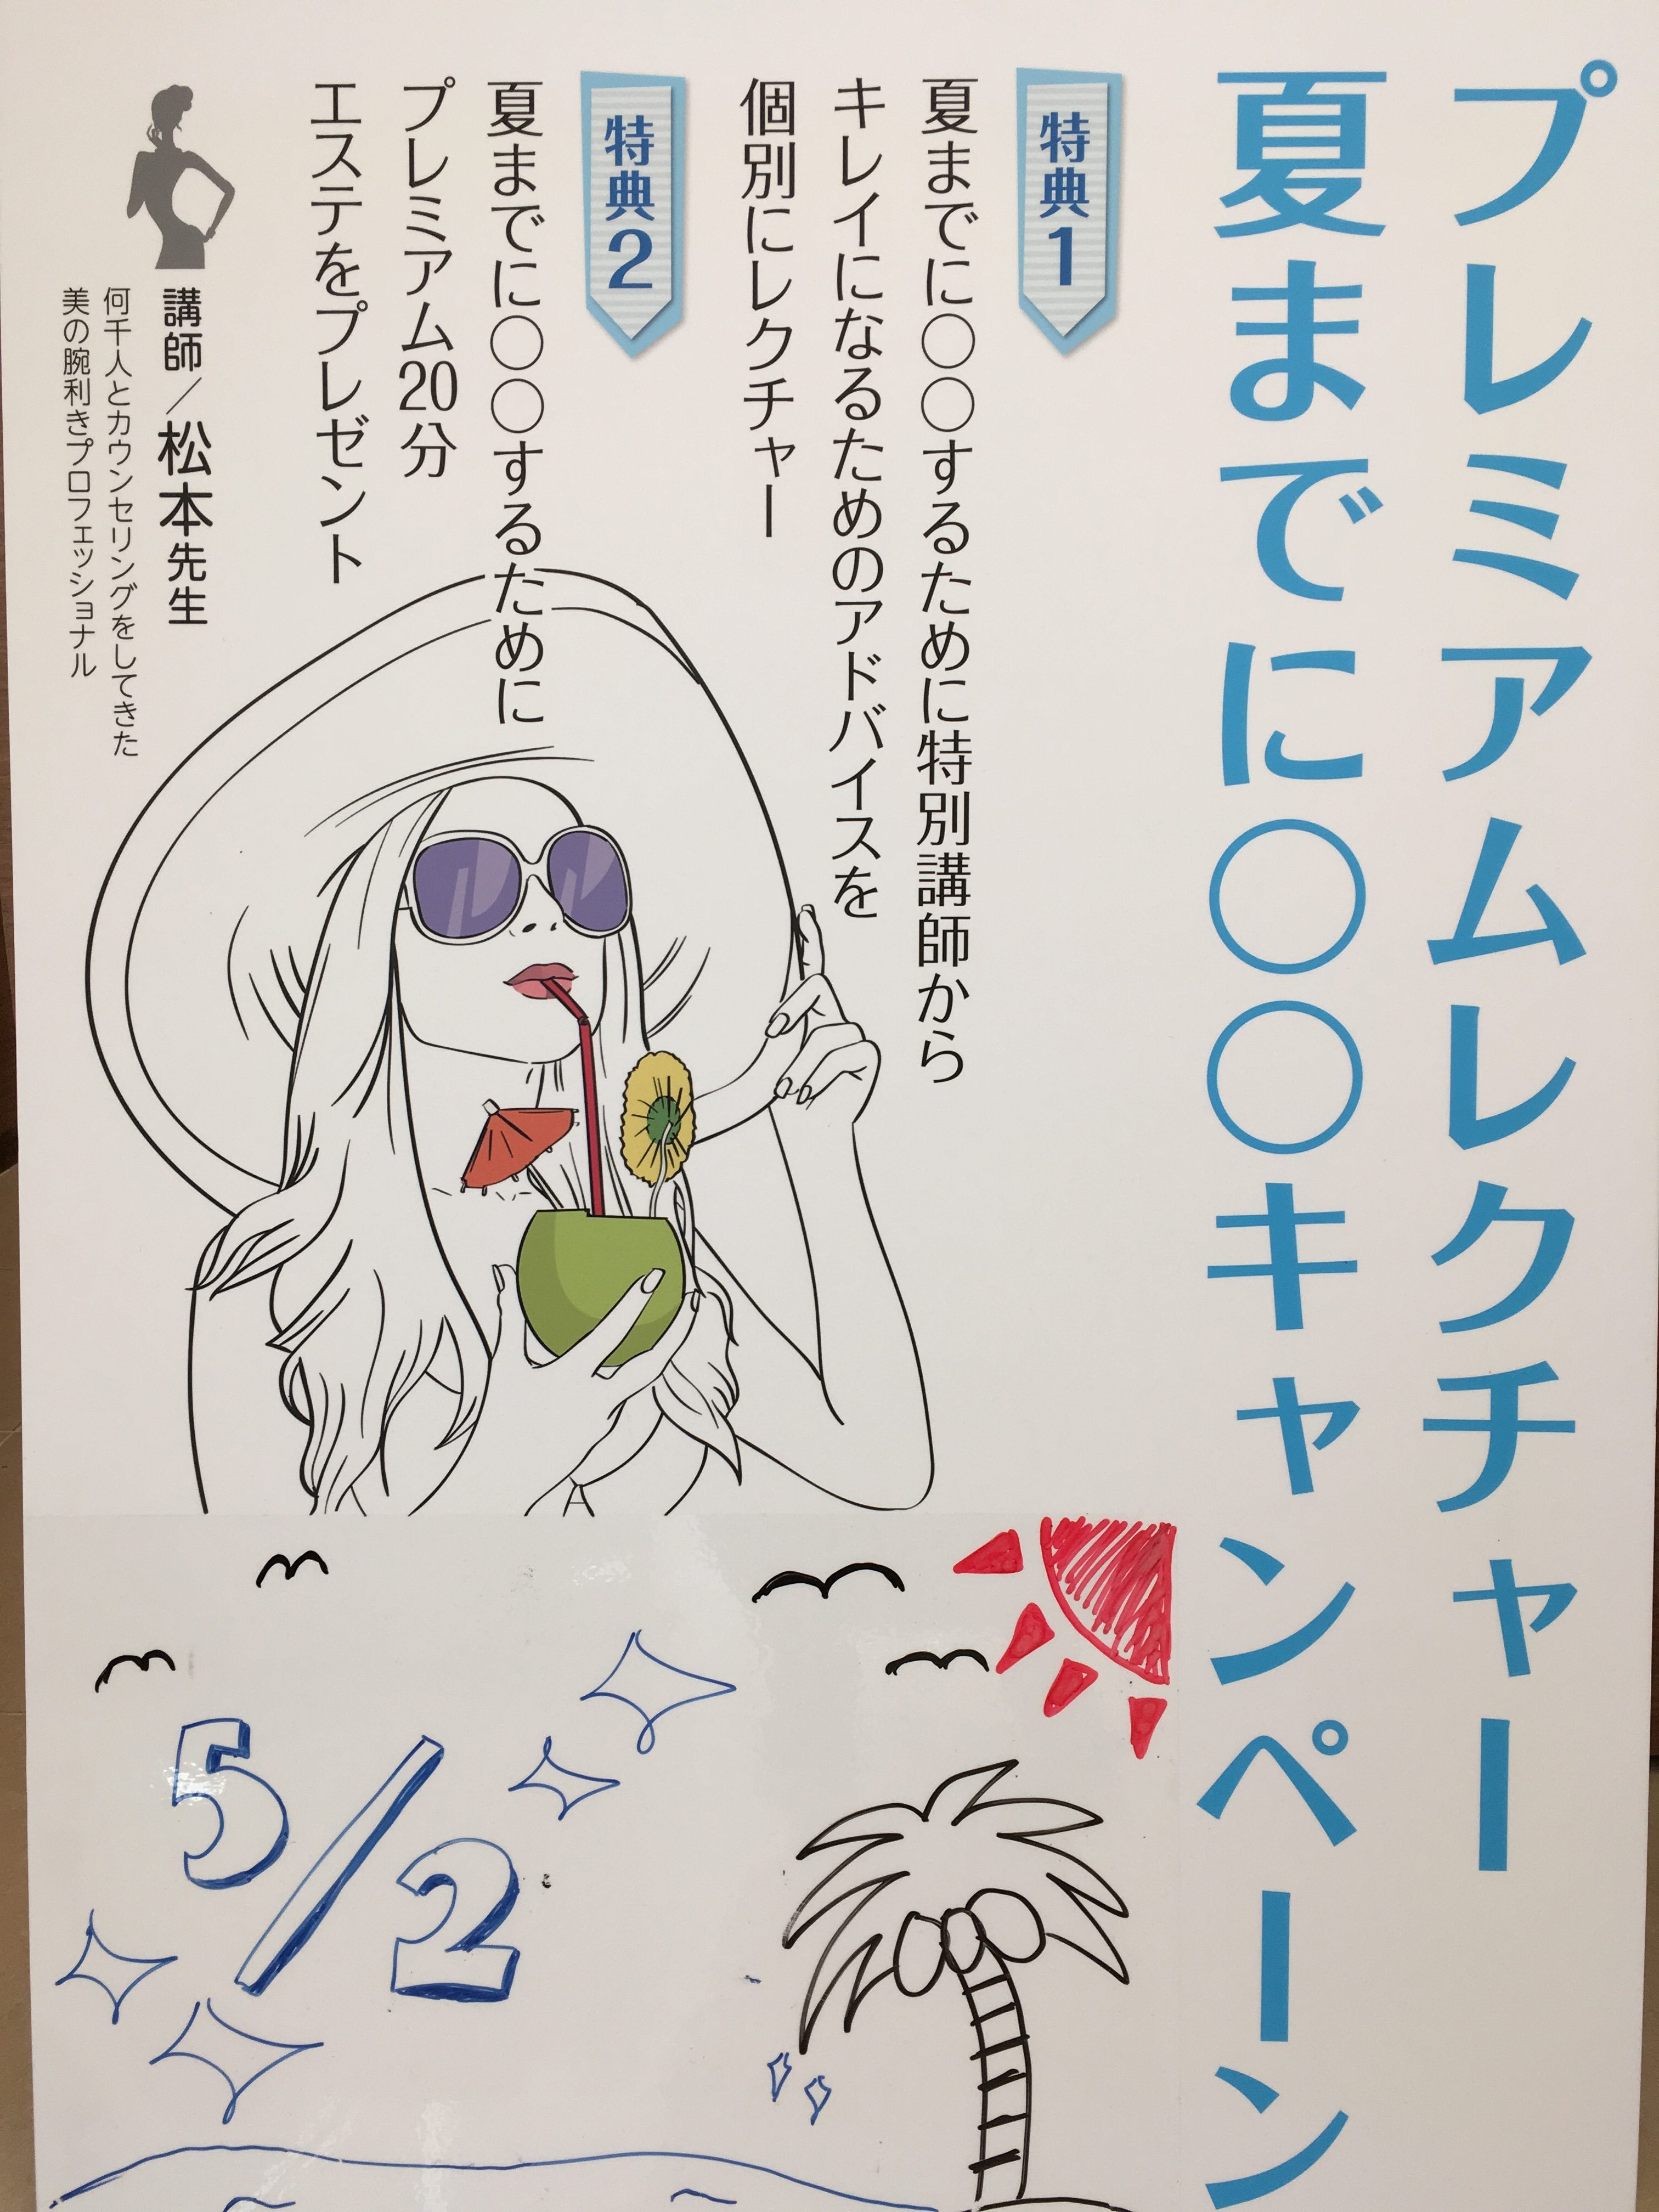 プレミアムレクチャー
夏までに○○キャンペーン
特典1
夏までに○○するために特別講師から
キレイになるためのアドバイスを
個別にレクチャー
特典2
夏までに○○するために
プレミアム20分
エステをプレゼント
講師／松本先生
何千人とカウンセリングをしてきた
美の腕利きプロフェッショナル
5/2